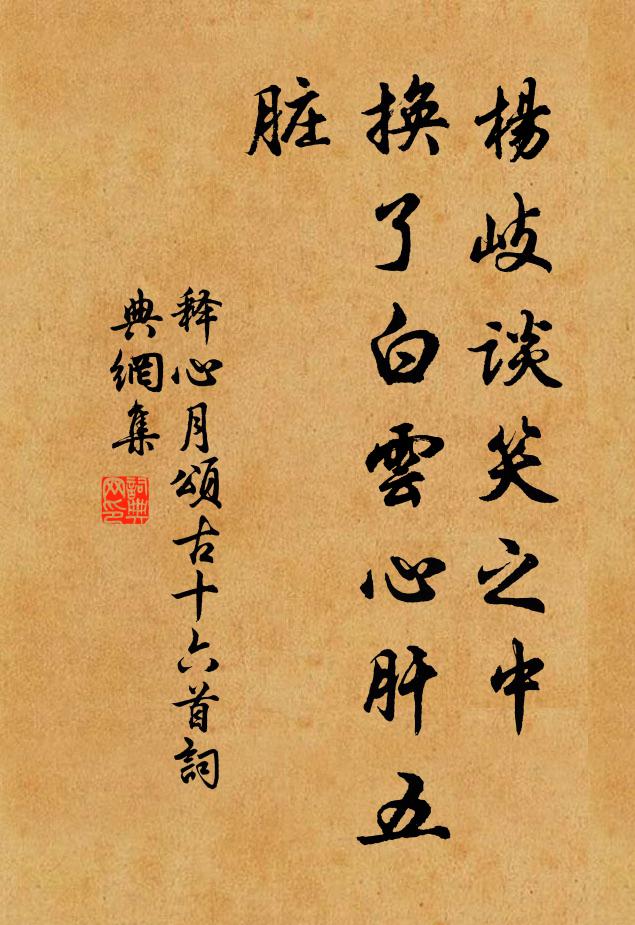 楊岐談笑之中
換了白雲心肝五
脏
释心月頌古十六首詞
典網集
詞典
网印